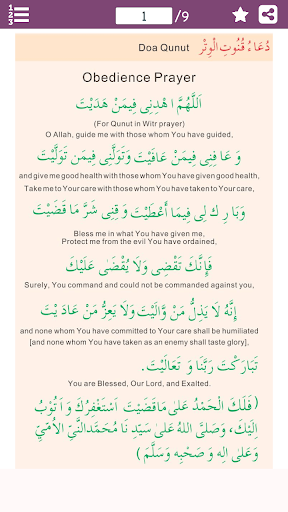 1 /9
Doa Qunut دُعَاءُ قُنُوتِ الْوِتْر
Obedience Prayer
اَللَّهُمَّ اهْدِنِى فِيمَنْ هَدَيْتَ
(For Qunut in Witr prayer)
O Allah, guide me with those whom You have guided,
وَ عَا فِنِى فِيمَنْ عَافَيْتَ وَتَوَلَّنِى فِيمَن تَوَلَّيْتَ
and give me good health with those whom You have given good health,
Take me to Your care with those whom You have taken to Your care,
وَبَا رِ ك لِى فِيمَا أَعْطَيْتَ وَ قِنِى شَرَّ مَا قَضَيْتَ
Bless me in what You have given me,
Protect me from the evil You have ordained,
فَإِنَّكَ تَقْضِى وَلَا يُقْضَى عَلَيْكَ
Surely, You command and could not be commanded against you,
إِنَّهُ لَا يَذِلُّ مَنْ وَّالَيْتَ وَلَا يَعِزُّ مَنْ عَادَ يْتَ
and none whom You have committed to Your care shall be humiliated
[and none whom You have taken as an enemy shall taste glory],
تَبَارَكْتَ رَبَّنَا وَ تَعَالَيْتَ.
You are Blessed, Our Lord, and Exalted.
( فَلَكَ الْحَمْدُ عَلىٰ مَاقَضَيْتَ اَسْتَغْفِرُكَ وَ اَتُوْبُ
اِلَيْكَ، وَصَلَّىَ اللهُ عَلىٰ سَيِّدِ نَا مُحَمَّدِالنَّبِىِّ الْاُمِّيِّ
وَعَلىٰ اٰلِه وَ صَحْبِه وَسَلَّمَ )